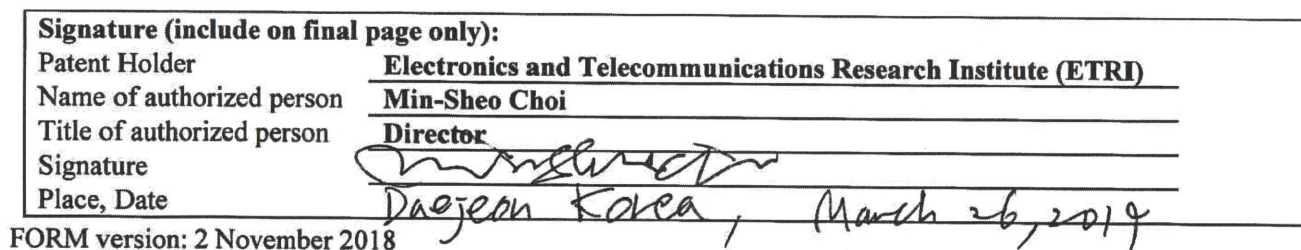 Signature (include on final page only):
Patent Holder Electronics and Telecommunications Research Institute (ETRI)
Name of authorized person Min-Sheo Choi
Title of authorized person Director
Signature
Place, Date Daejeon Korea, March 26, 2019
FORM version: 2 November 2018